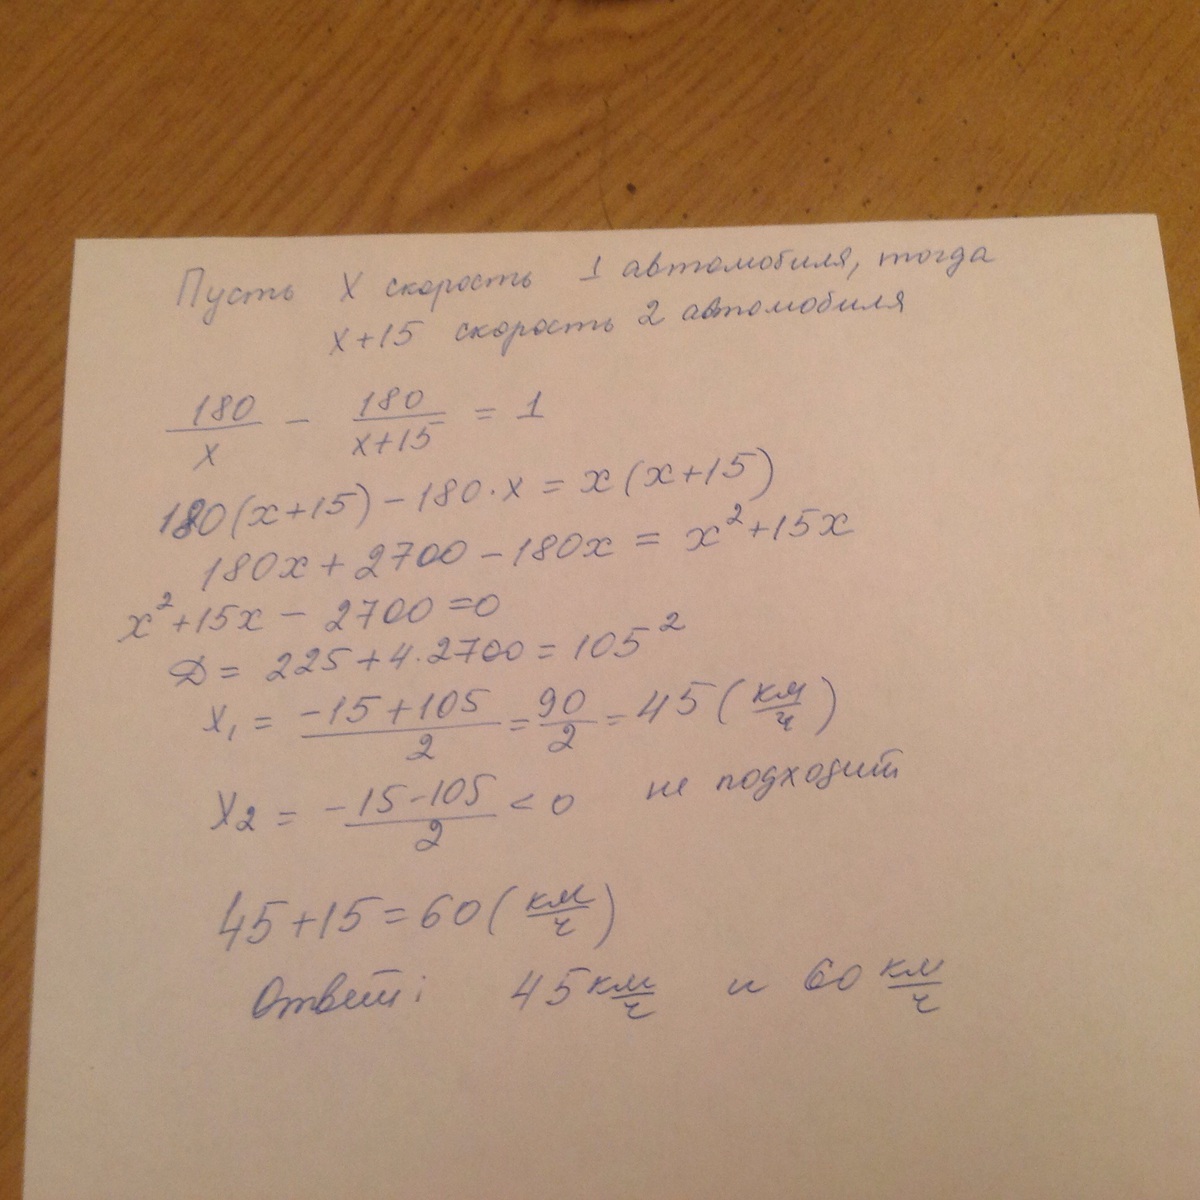 Пусть x скорость 1 автомобиля, тогда
x+15 скорость 2 автомобиля
180/x − 180/(x+15) = 1
180(x+15)−180·x = x(x+15)
180x+2700−180x = x²+15x
x²+15x−2700=0
D= 225+4·2700=105²
x₁ = (−15+105)/2 = 90/2 = 45 (км/ч)
x₂ = (−15−105)/2 < 0 не подходит
45+15=60 (км/ч)
Ответ: 45 км/ч и 60 км/ч